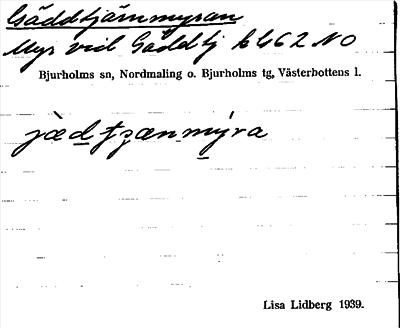 Gäddtjärnmyran
Myr vid Gäddtj k462 NO
Bjurholms sn, Nordmaling o. Bjurholms tg, Västerbottens l.
jæ̀d tʒænmýra
Lisa Lidberg 1939.